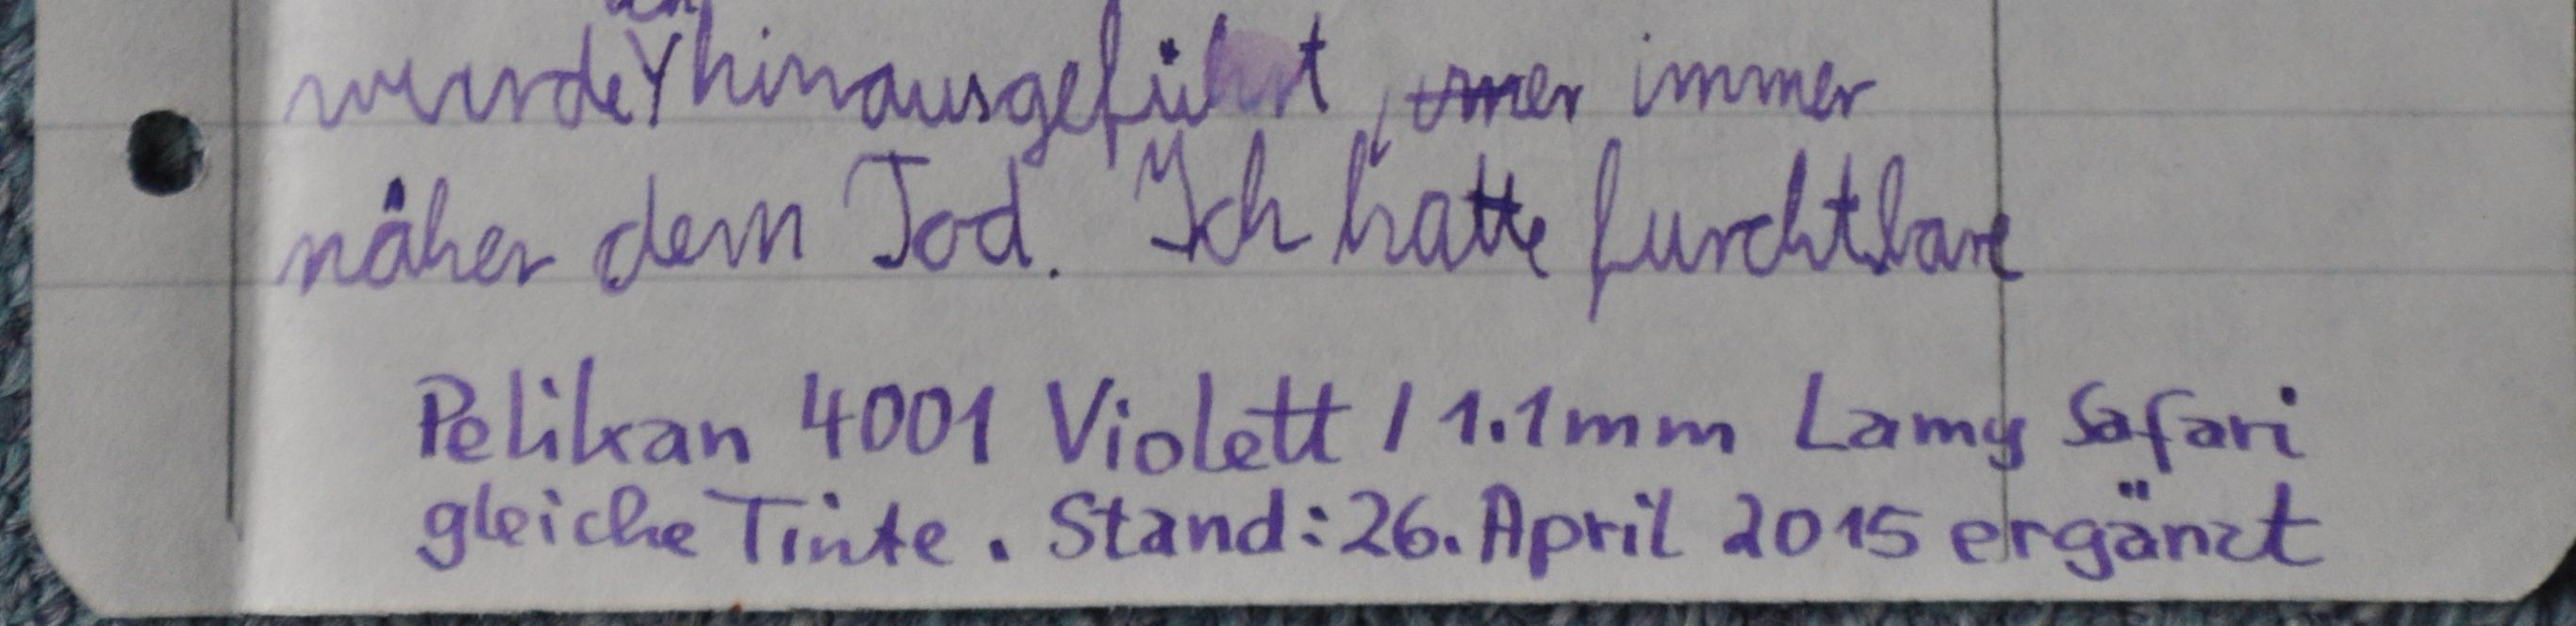 wurde hinausgeführt, immer
näher dem Tod. Ich hatte furchtbare
Pelikan 4001 Violett / 1.1mm Lamy Safari
gleiche Tinte. Stand: 26. April 2015 ergänzt